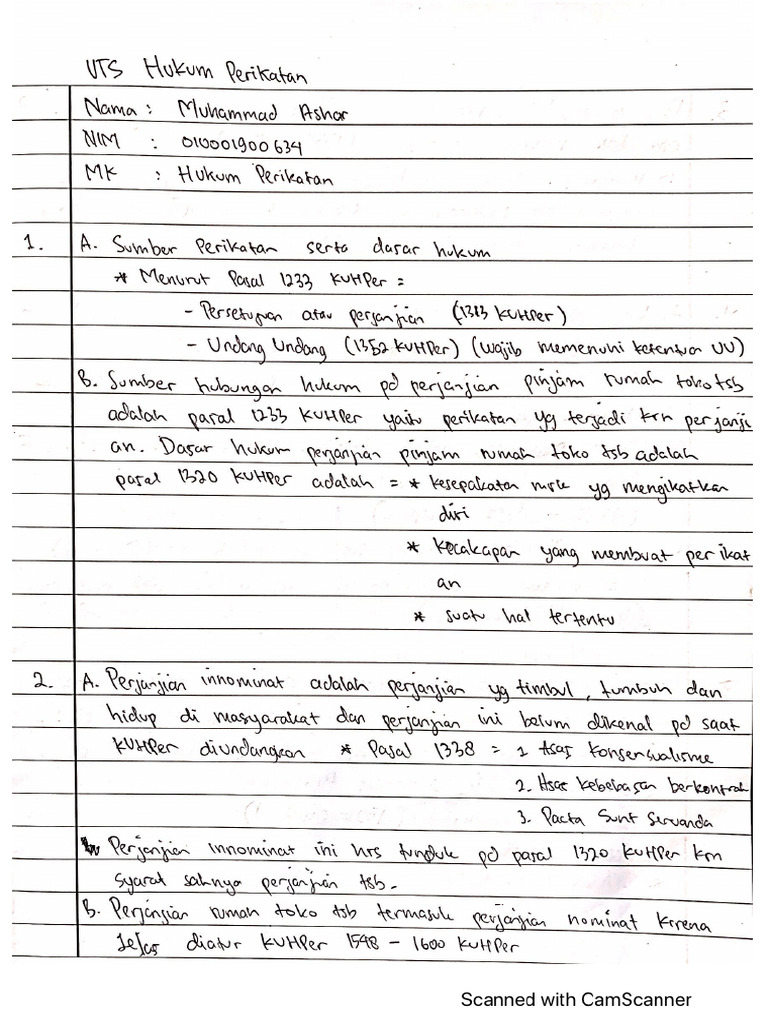 UTS Hukum Perikatan
Nama : Muhammad Ashar
NIM : 010001900634
MK : Hukum Perikatan
1. A. Sumber Perikatan serta dasar hukum
* Menurut Pasal 1233 KUHPer =
- Persetujuan atau perjanjian (1313 KUHPer)
- Undang Undang (1352 KUHPer) (wajib memenuhi ketentuan UU)
B. Sumber hubungan hukum pd perjanjian pinjam rumah toko tsb
adalah pasal 1233 KUHPer yaitu perikatan yg terjadi krn perjanji
an. Dasar hukum perjanjian pinjam rumah toko tsb adalah
pasal 1320 KUHPer adalah = * kesepakatan yg mengikatkan
diri
* kecakapan yang membuat perikat
an
* suatu hal tertentu
2. A. Perjanjian innominat adalah perjanjian yg timbul, tumbuh dan
hidup di masyarakat dan perjanjian ini belum dikenal pd saat
KUHPer diundangkan * Pasal 1338 = 1 Asas konsensualisme
2. Asas kebebasan berkontrak
3. Pacta Sunt Servanda
Perjanjian innominat ini hrs tunduk pd pasal 1320 KUHPer krn
syarat sahnya perjanjian tsb.
B. Perjanjian rumah toko tsb termasuk perjanjian nominat krrena
Jelas diatur KUHPer 1548 - 1600 KUHPer
Scanned with CamScanner